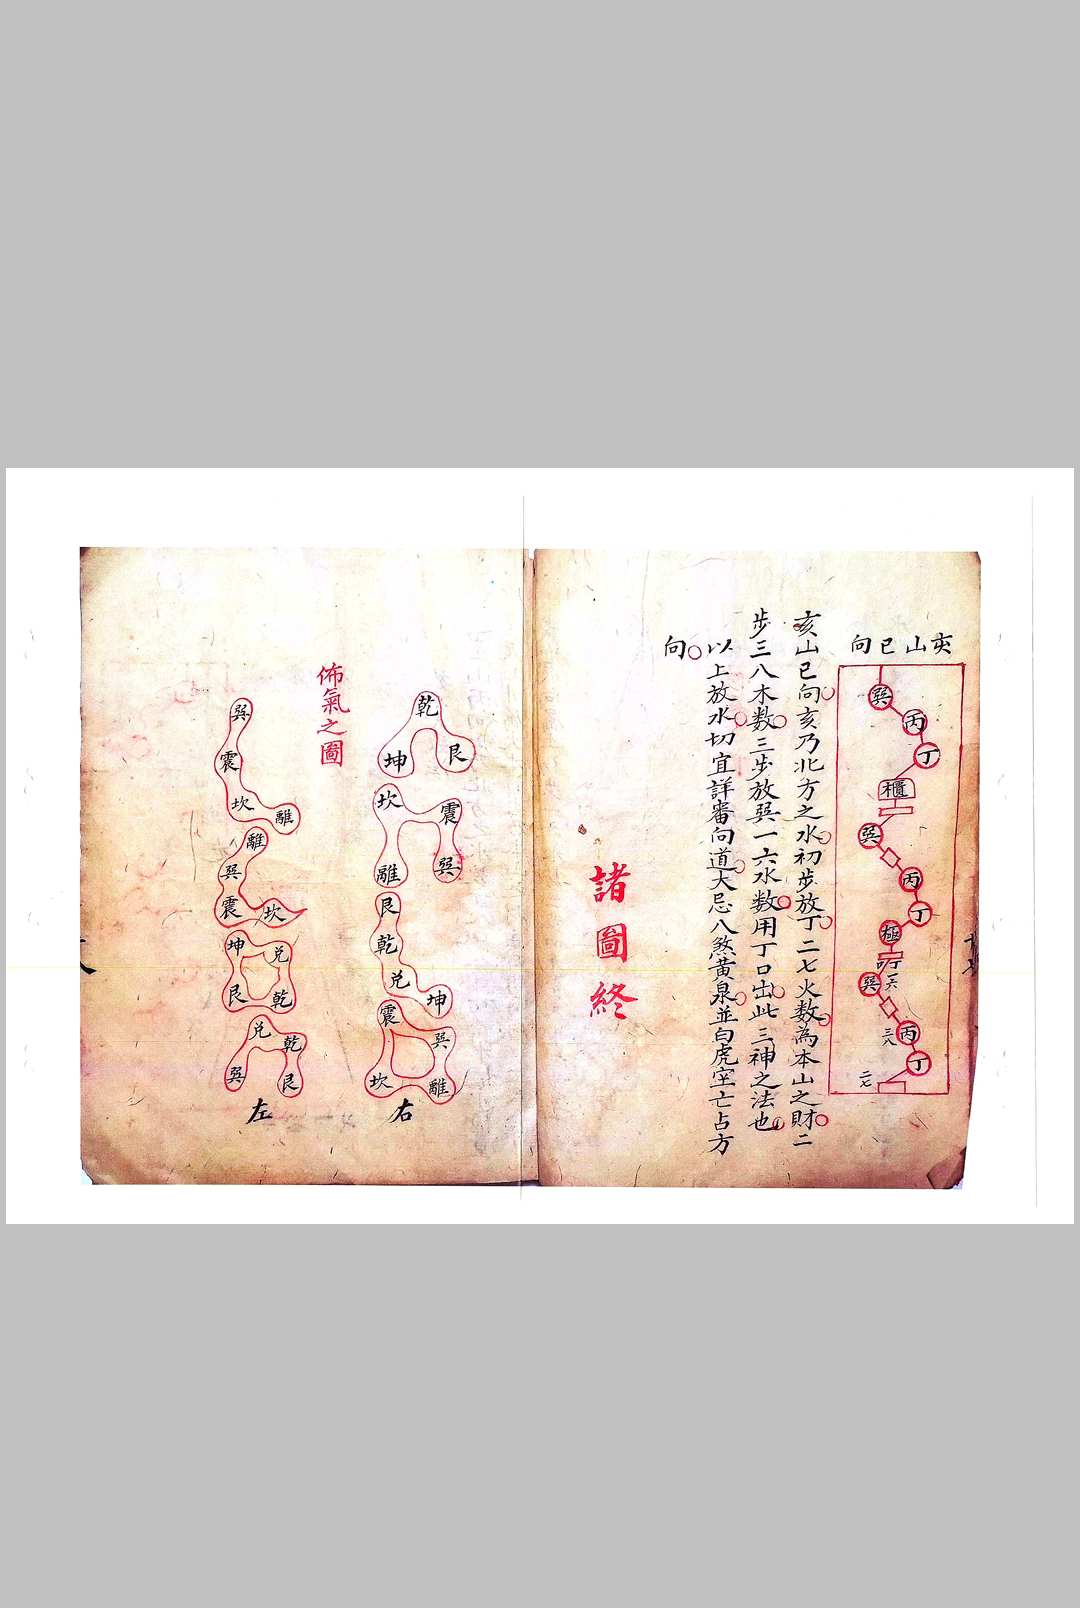 亥山巳向
巽
丙
丁
櫃
巽
丙
丁
極
巽
一六
丙
三八
丁
二七
亥山巳向亥乃北方之水初步放丁二七火数為本山之財二
步三八木数三步放巽一六水数用丁口出此三神之法也
以上放水切宜詳審向道大忌八煞黄泉並白虎空亡占方
向
諸圖終
乾
坤 艮
坎 震
離 巽
艮
乾
兑
坤
震 巽
坎 離
右
佈氣之圖
巽
震
坎 離
離
巽
震 坎
坤 兑
艮 乾
兑 乾
巽 艮
左